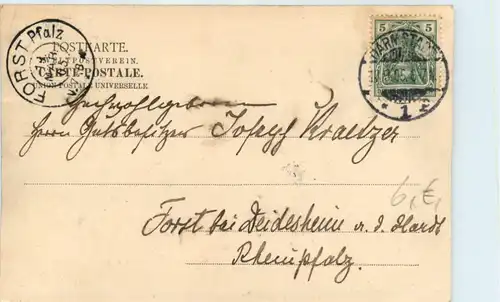 FORST Pfalz
POSTKARTE.
WELTPOSTVEREIN.
CARTE POSTALE.
UNION POSTALE UNIVERSELLE.
5 5
DARMSTADT
* 1
Hochwohlgeboren
Herrn Gutsbesitzer Joseph Kraetzer
6,€
Forst bei Deidesheim a. d. Hardt
Rheinpfalz.